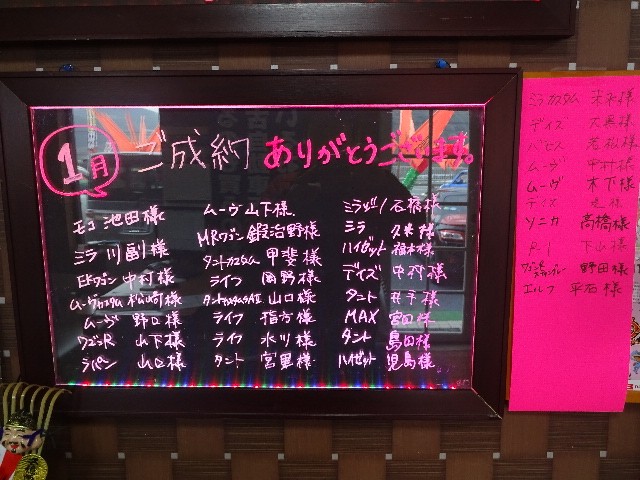 1月 ご成約 ありがとうございます。
モコ 池田様
ミラ 川副様
EKワゴン 中村様
ムーヴカスタム 松崎様
ムーヴ 野口様
ワゴンR 山下様
ラパン 山口様
ムーヴ 山下様
MRワゴン 鍛治野様
タントカスタム 甲斐様
ライフ 岡野様
タントカスタム 山口様
ライフ 指方様
ライフ 水川様
タント 宮里様
ミラジーノ 石橋様
ミラ 久米様
ハイゼット 福本様
デイズ 中村様
タント 井手様
MAX 宮田様
タント 島田様
ハイゼット 児島様
ミラカスタム 米衣様
デイズ 大黒様
若松様
ムーヴ 中村様
ムーヴ 木下様
デイズ 様
ソニカ 高橋様
R1 下山様
ワゴンR 野田様
エルフ 平石様